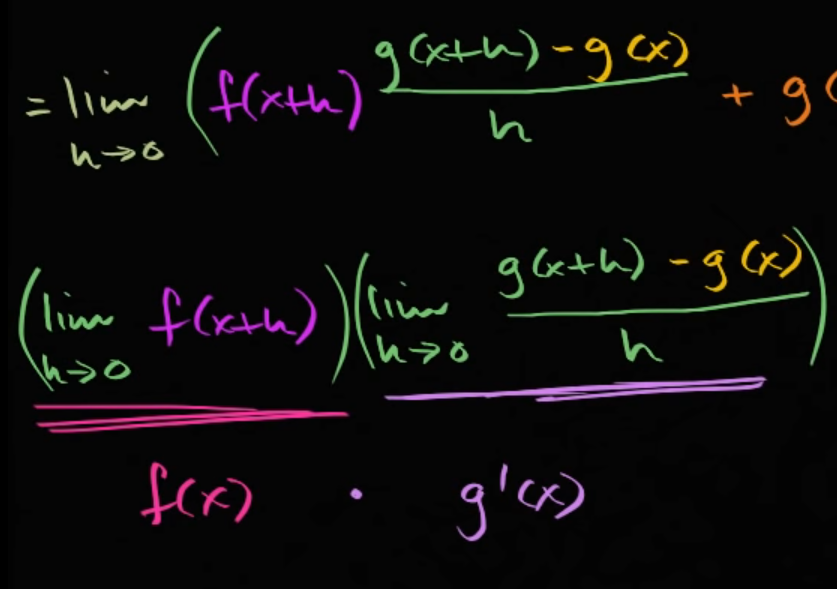 = lim h→0 ( f(x+h) g(x+h) - g(x) / h + g(
( lim h→0 f(x+h) ) ( lim h→0 g(x+h) - g(x) / h )
f(x) · g'(x)